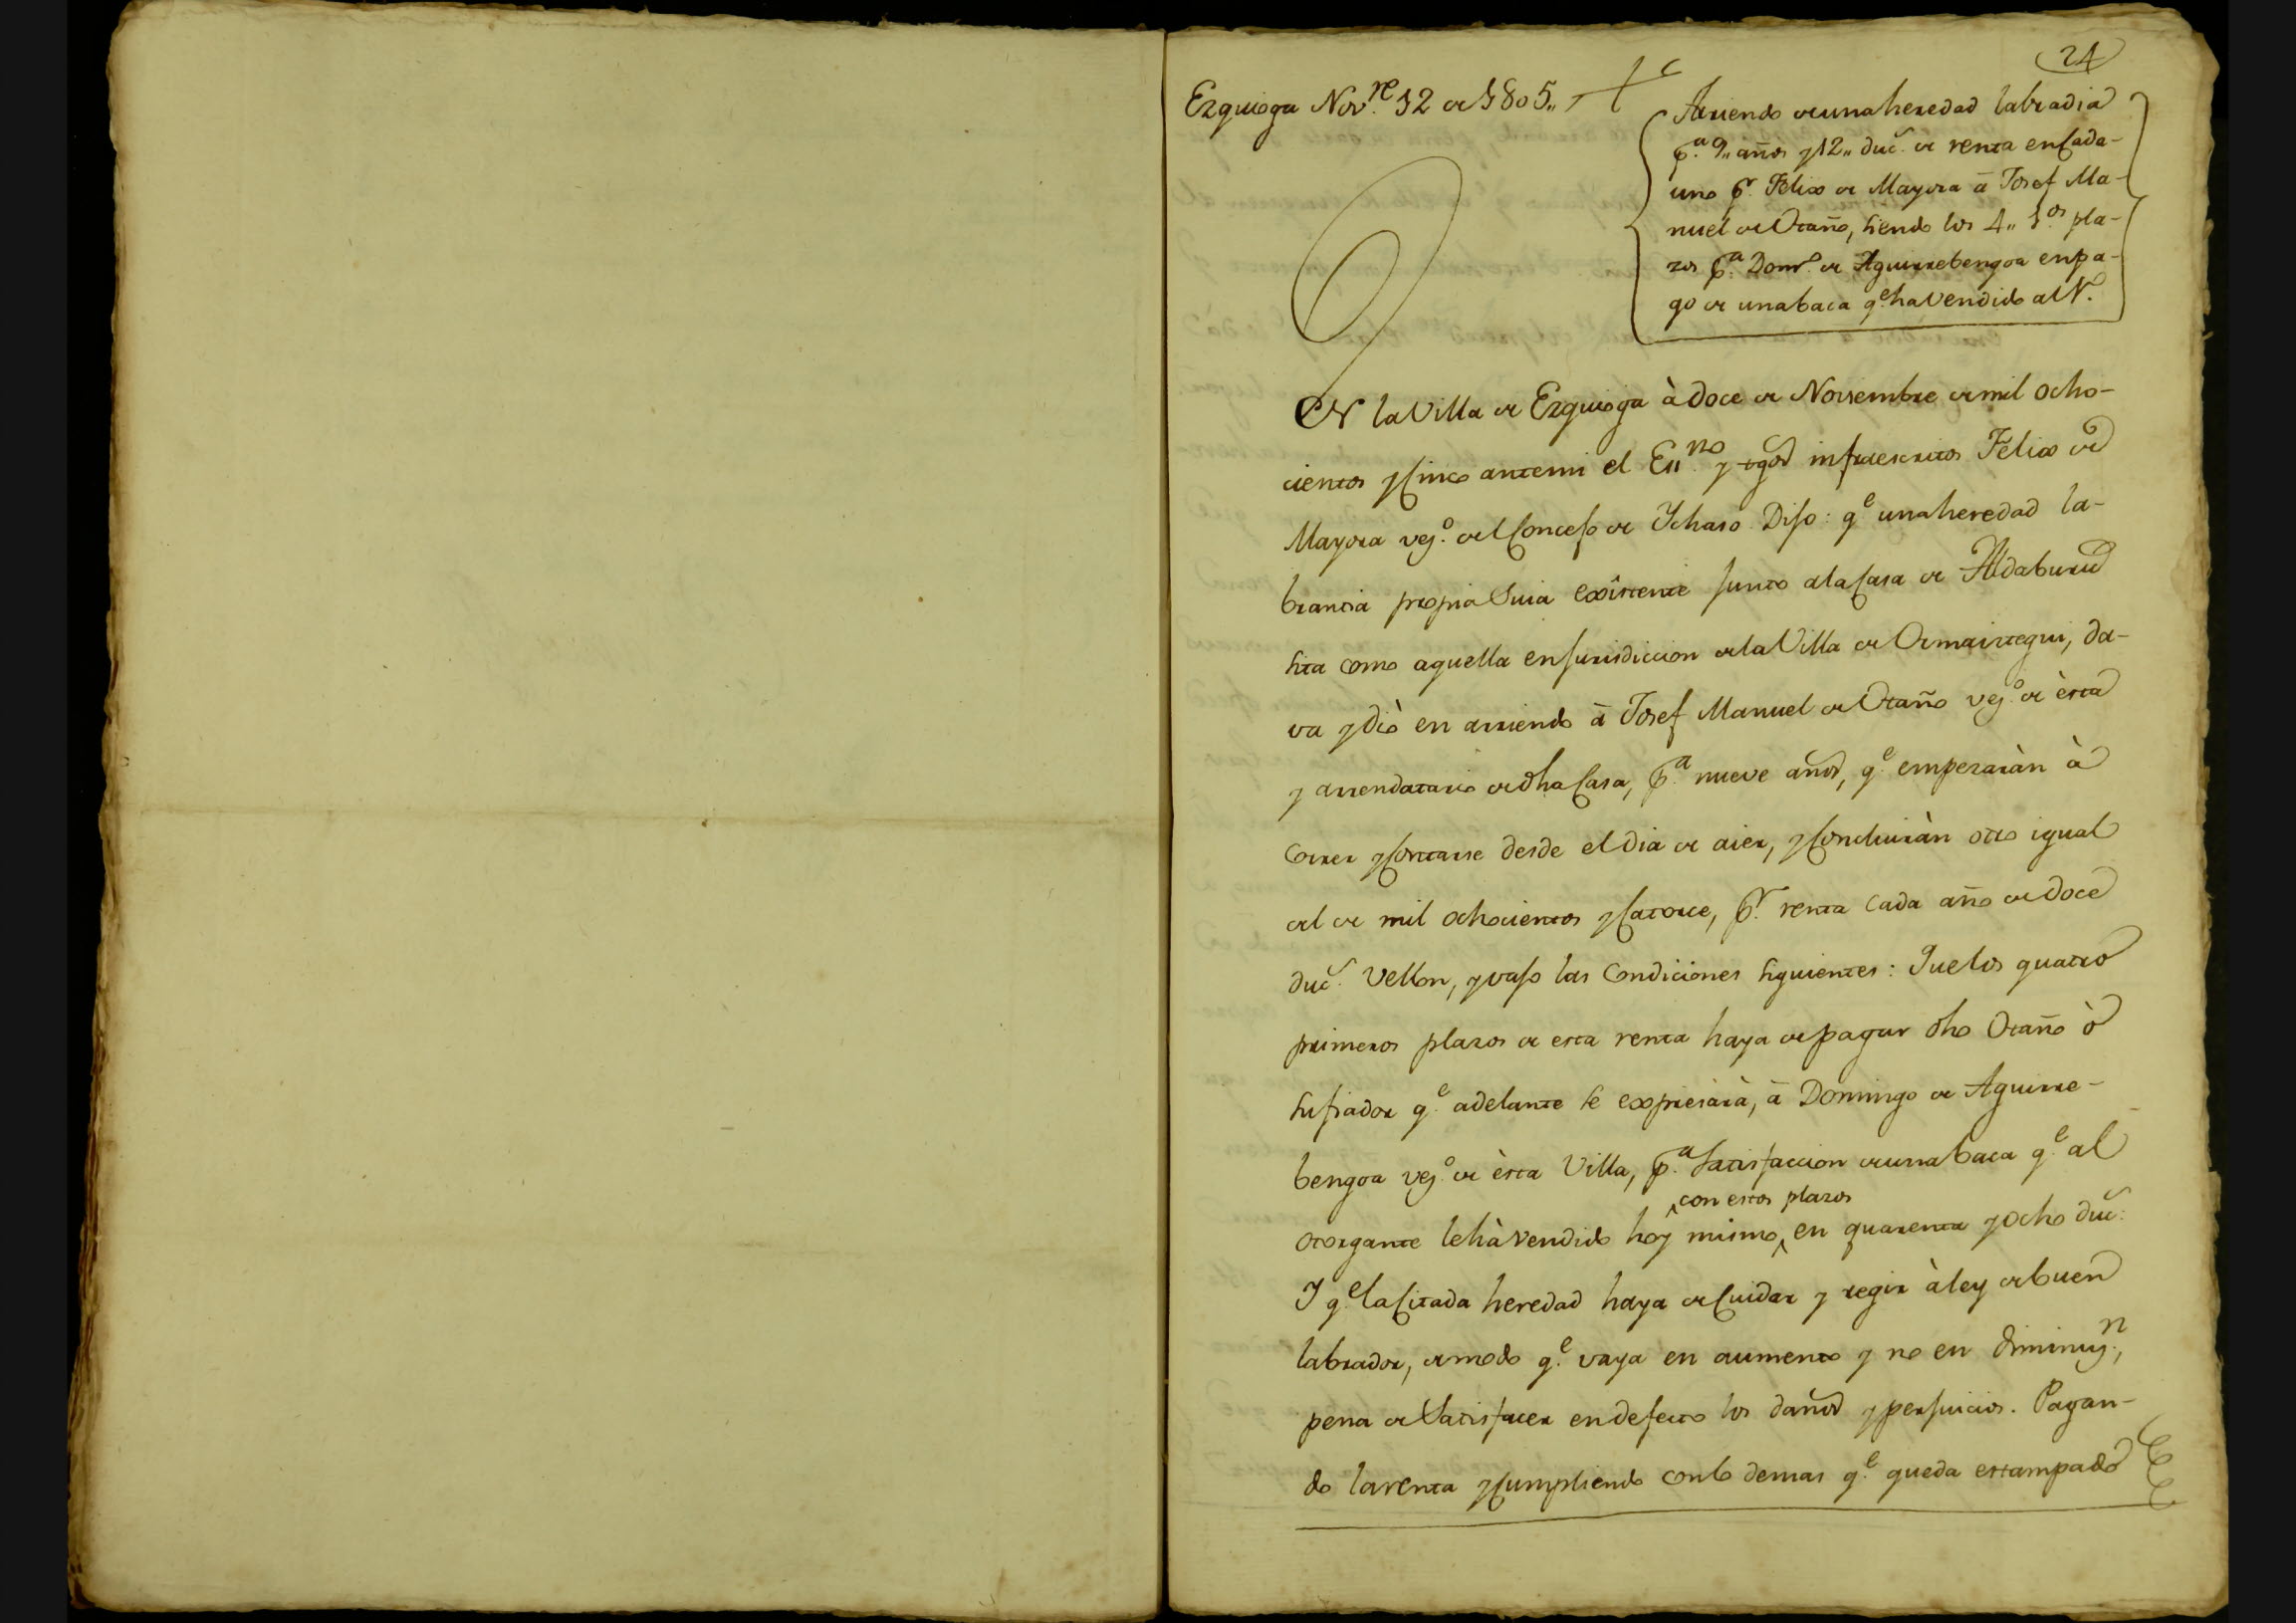 24
Ezquioga Nov.re 12 de 1805,,
Arriendo de una heredad labradia
p.a 9,, años y 12,, duc.s de renta en cada-
uno p.r Felix de Mayora â Josef Ma-
nuel de Otaño, siendo los 4,, 1.os pla-
zos p.a Dom.o de Aguirrebengoa en pa-
go de una baca q.e ha vendido al N.
EN la Villa de Ezquioga à doce de Noviembre de mil ocho-
cientos y Cinco ante mi el Ess.no y tgos infraescritos Felix de
Mayora vez.o del Concejo de Ychaso Dijo: q.e una heredad la-
brantia propia Suia existente junto ala Casa de Aldaburu
sita como aquella en jurisdiccion de la Villa de Ormaiztegui, da-
va y diò en arriendo â Josef Manuel de Otaño vez.o de èsta
y arrendatario de dha Casa, p.a nueve años, q.e empezaràn à
Correr y Contarse desde el dia de aier, y Concluiràn otro igual
del de mil ochocientos y Catorce, p.r renta cada año de doce
duc.s vellon, y vajo las Condiciones siguientes: Que los quatro
primeros plazos de esta renta haya de pagar dho Otaño ò
su fiador q.e adelante se expresarà, â Domingo de Aguirre-
bengoa vez.o de èsta Villa, p.a Satisfaccion de una baca q.e al
con estos plazos
otorgante le hà vendido hoy mismo, en quarenta y ocho duc.s
Y q.e la Citada heredad haya de Cuidar y regir à ley de buen
labrador, de modo q.e vaya en aumento y no en diminuy.n,
pena de Satisfacer en defecto los daños y perjuicios. Pagan-
do la renta y Cumpliendo con lo demas q.e queda estampado